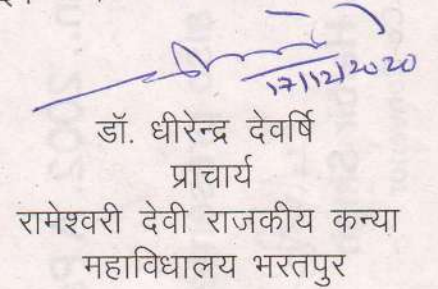 17/12/2020
डॉ. धीरेन्द्र देवर्षि
प्राचार्य
रामेश्वरी देवी राजकीय कन्या
महाविधालय भरतपुर